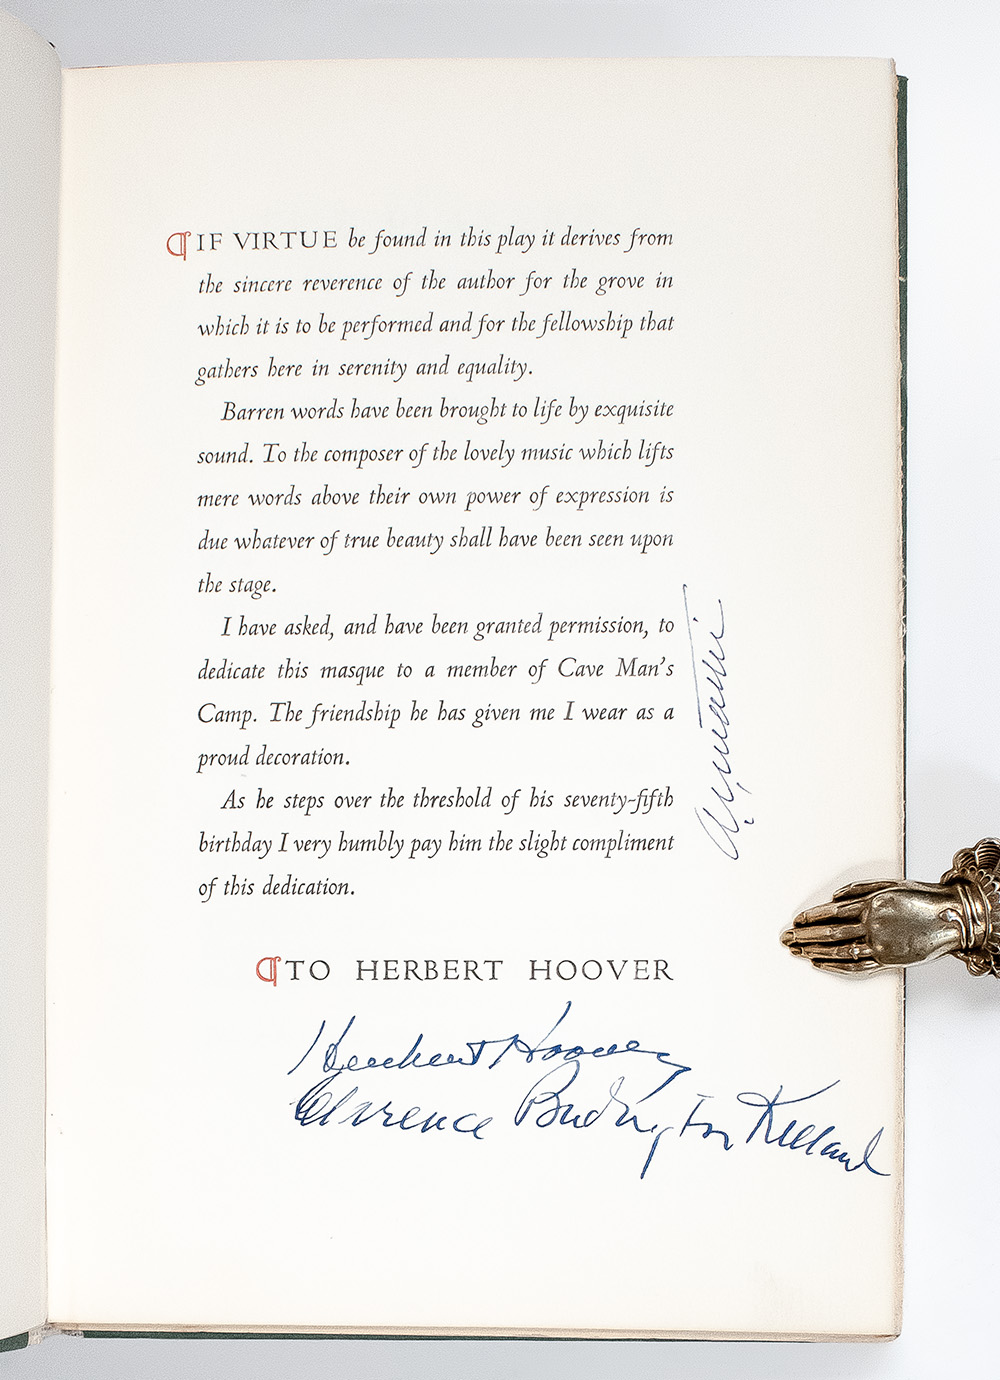 IF VIRTUE be found in this play it derives from
the sincere reverence of the author for the grove in
which it is to be performed and for the fellowship that
gathers here in serenity and equality.
Barren words have been brought to life by exquisite
sound. To the composer of the lovely music which lifts
mere words above their own power of expression is
due whatever of true beauty shall have been seen upon
the stage.
I have asked, and have been granted permission, to
dedicate this masque to a member of Cave Man's
Camp. The friendship he has given me I wear as a
proud decoration.
As he steps over the threshold of his seventy-fifth
birthday I very humbly pay him the slight compliment
of this dedication.
TO HERBERT HOOVER
Herbert Hoover
Clarence Budington Kelland